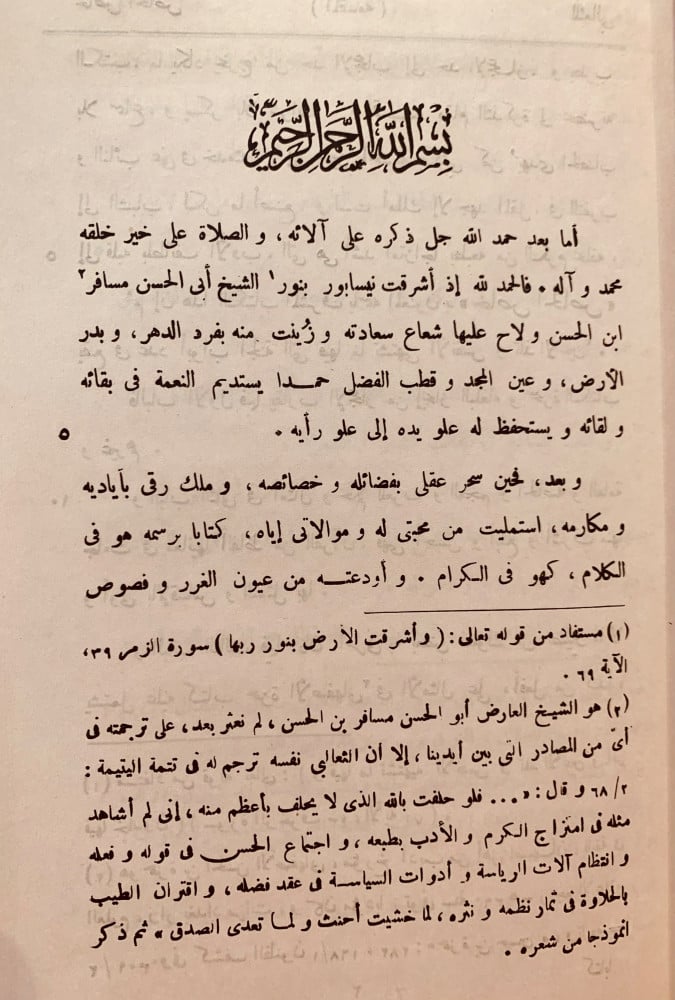 بسم الله الرحمن الرحيم
أما بعد حمد الله جل ذكره على آلائه، و الصلاة على خير خلقه
محمد و آله . فالحمد لله إذ أشرقت نيسابور بنور١ الشيخ أبى الحسن مسافر٢
ابن الحسن و لاح عليها شعاع سعادته و زُينت منه بفرد الدهر، و بدر
الأرض، و عين المجد و قطب الفضل حمدا يستديم النعمة فى بقائه
و لقائه و يستحفظ له علو يده إلى علو رأيه . ٥
و بعد، فحين سحر عقلى بفضائله و خصائصه، و ملك رقى بأياديه
و مكارمه، استمليت من محبتى له و موالاتى إياه، كتابا برسمه هو فى
الكلام، كهو فى الكرام . و أودعته من عيون الغرر و فصوص
(١) مستفاد من قوله تعالى: ( و أشرقت الأرض بنور ربها ) سورة الزمر ٣٩،
الآية ٦٩ .
(٢) هو الشيخ العارض أبو الحسن مسافر بن الحسن، لم نعثر بعد، على ترجمته فى
أىّ من المصادر التى بين أيدينا، إلا أن الثعالبى نفسه ترجم له فى تتمة اليتيمة :
٢/ ٦٨ و قال : « ... فلو حلفت بالله الذى لا يحلف بأعظم منه، إنى لم أشاهد
مثله فى امتزاج الكرم و الأدب بطبعه، و اجتماع الحسن فى قوله و فعله
و انتظام آلات الرياسة و أدوات السياسة فى عقد فضله، و اقتران الطيب
بالحلاوة فى ثمار نظمه و نثره، لما خشيت أحنث و لما تعدى الصدق » ثم ذكر
انموذجا من شعره .